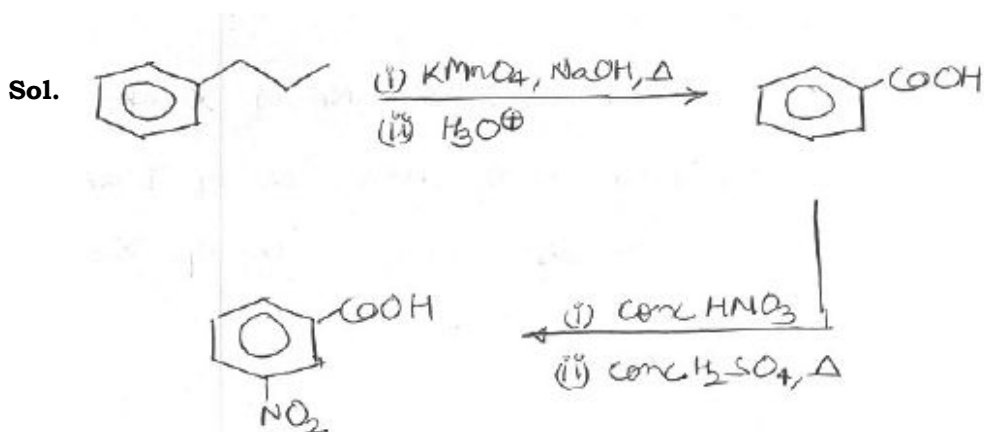 Sol.
(i) KMnO4, NaOH, Δ
(ii) H3O⊕
COOH
COOH
(i) conc HNO3
(ii) conc. H2SO4, Δ
NO2